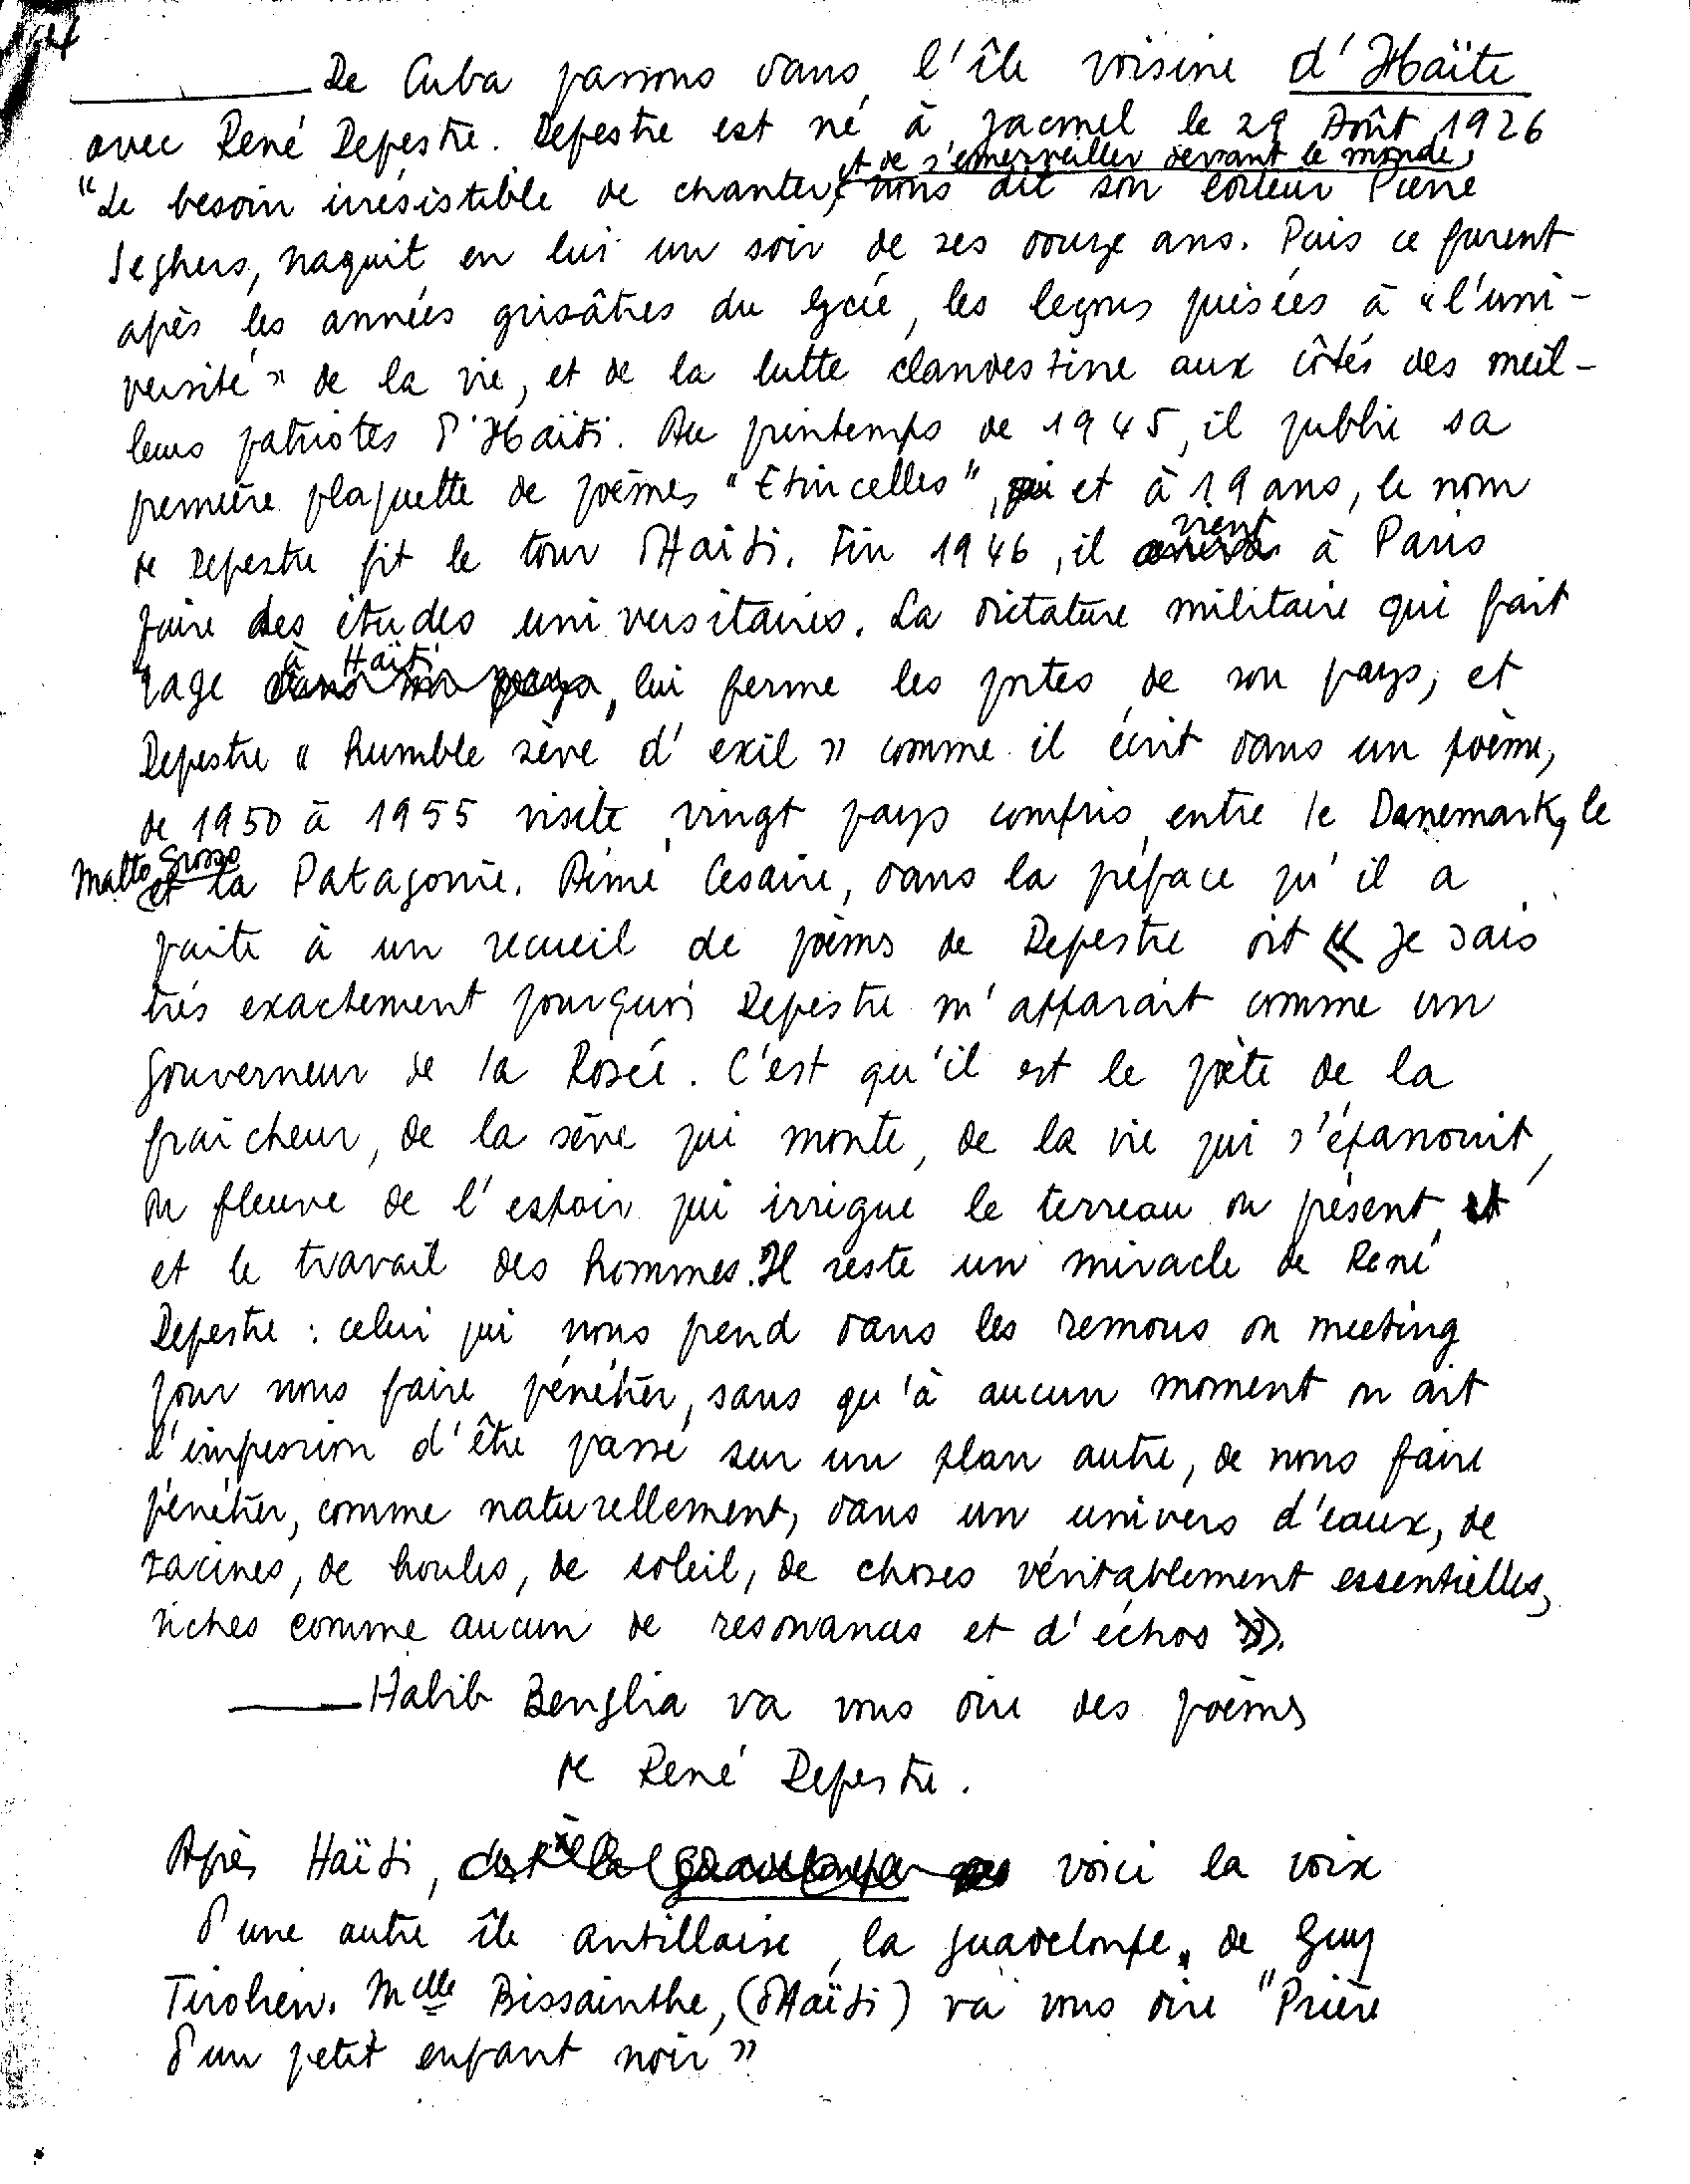 De Cuba passons dans l'île voisine d'Haïte
avec René Depestre. Depestre est né à Jacmel le 29 Août 1926
et de s'émerveiller devant le monde,
"Le besoin irrésistible de chanter, nous dit son éditeur Pierre
Seghers, naquit en lui un soir de ses douze ans. Puis ce furent
après les années grisâtres du lycée, les leçons puisées à «l'uni-
versité» de la vie, et de la lutte clandestine aux côtés des meil-
leurs patriotes d'Haïti. Au printemps de 1945, il publie sa
première plaquette de poèmes "Etincelles", et à 19 ans, le nom
vient
de Depestre fit le tour d'Haïti. Fin 1946, il à Paris
faire des études universitaires. La dictature militaire qui fait
à Haïti
rage dans son pays, lui ferme les portes de son pays, et
Depestre « humble sève d'exil » comme il écrit dans un poème,
de 1950 à 1955 visite vingt pays compris entre le Danemark, le
Matto Grosso
et la Patagonie. Aimé Césaire, dans la préface qu'il a
faite à un recueil de poèmes de Depestre dit « Je sais
très exactement pourquoi Depestre m'apparaît comme un
Gouverneur de la Rosée. C'est qu'il est le poète de la
fraîcheur, de la sève qui monte, de la vie qui s'épanouit,
du fleuve de l'espoir qui irrigue le terreau du présent et
et le travail des hommes. Il reste un miracle de René
Depestre : celui qui nous prend dans les remous du meeting
pour nous faire pénétrer, sans qu'à aucun moment on ait
l'impression d'être passé sur un plan autre, de nous faire
pénétrer, comme naturellement, dans un univers d'eaux, de
racines, de houles, de soleil, de choses véritablement essentielles,
riches comme aucun de resonances et d'échos ».
Habib Benglia va vous dire des poèmes
de René Depestre.
Après Haïti, c'est à la Guadeloupe voici la voix
d'une autre île antillaise, la Guadeloupe, de Guy
Tirolien. Melle Bissainthe, (d'Haïti) va vous dire "Prière
d'un petit enfant noir"